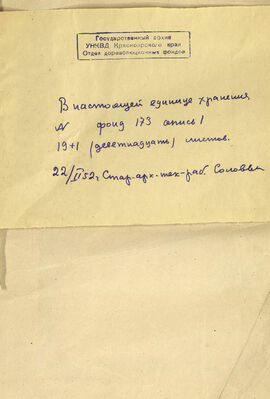 Государственный архив
УНКВД Красноярского края
Отдел дореволюционных фондов
В настоящей единице хранения
N фонд 173 опись 1
19+1 (девятнадцать) листов.
22/II 52г Стар-арх-тех-раб.